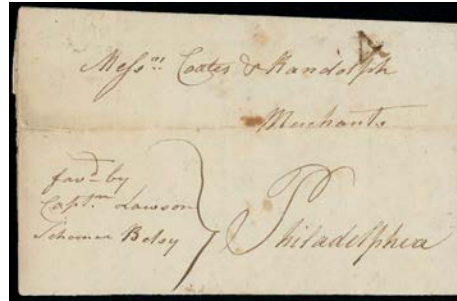 4
Messrs. Coates & Randolph
Merchants
favd by
Captn Lawson
Schooner Betsy
Philadelphia